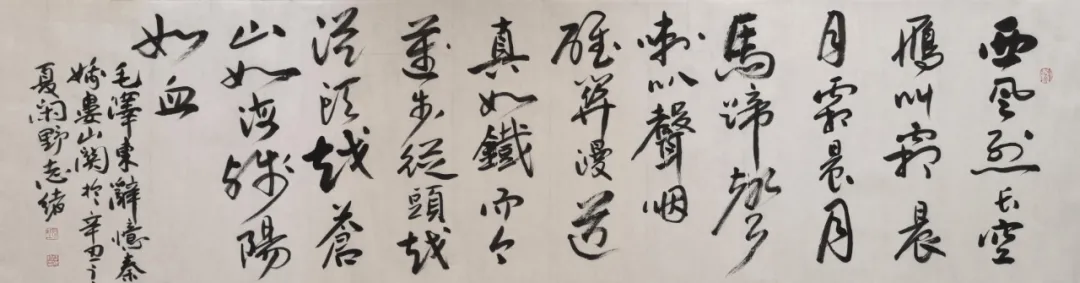 西風烈長空
鴈叫霜晨
月霜晨月
馬蹄聲碎
喇叭聲咽
雄關漫道
真如鐵而今
邁步從頭越
從頭越蒼
山如海殘陽
如血
毛澤東辭憶秦
娥婁山関於辛丑之
夏閑野志緒